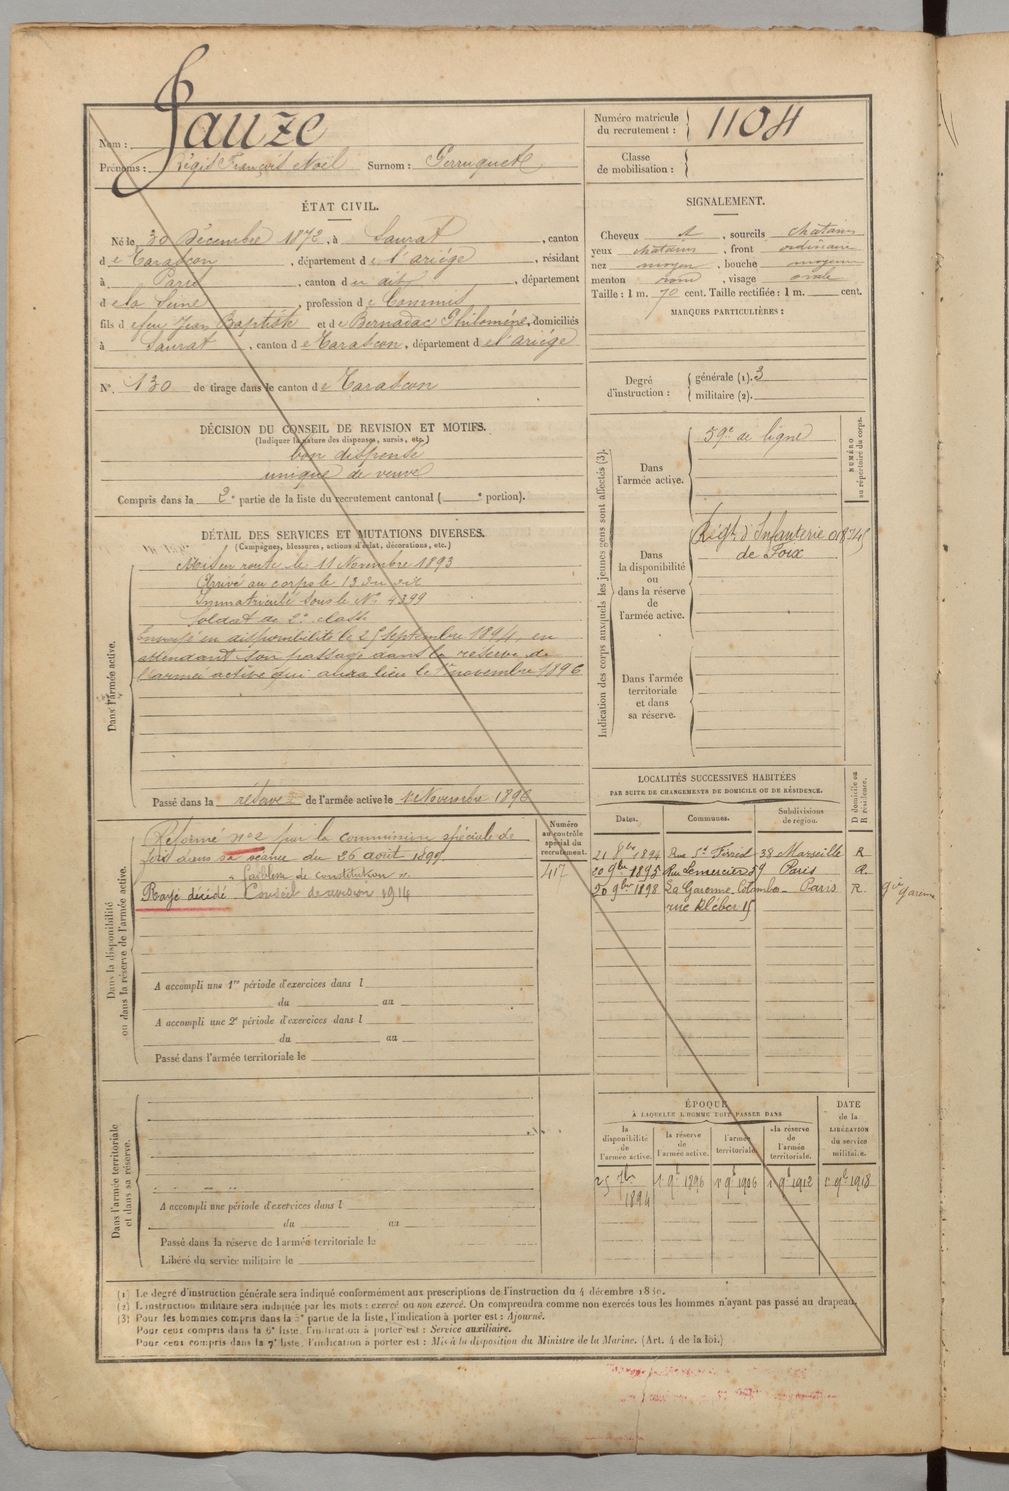 Nom : Sauze
Prénoms : Régis François Noël Surnom : Perruquet
Numéro matricule du recrutement : 1104
Classe de mobilisation :
ÉTAT CIVIL.
Né le 30 Décembre 1872, à Saurat, canton
de Tarascon, département de l'ariège, résidant
à Paris, canton du dit, département
de la Seine, profession de Commis
fils de feu Jean Baptiste et de Bernadac Philomène, domiciliés
à Saurat, canton de Tarascon, département de l'ariège
N° 130 de tirage dans le canton de Tarascon
SIGNALEMENT.
Cheveux , sourcils chatains
yeux chatains, front ordinaire
nez moyen, bouche moyenne
menton rond, visage ovale
Taille : 1 m. 70 cent. Taille rectifiée : 1 m. cent.
MARQUES PARTICULIÈRES :
Degré d'instruction : générale (1). 3
militaire (2).
DÉCISION DU CONSEIL DE REVISION ET MOTIFS.
(Indiquer la nature des dispenses, sursis, etc.)
bon dispensé
unique de veuve
Compris dans la 2e partie de la liste du recrutement cantonal ( e portion).
DÉTAIL DES SERVICES ET MUTATIONS DIVERSES.
(Campagnes, blessures, actions d'éclat, décorations, etc.)
Dans l'armée active.
Mis en route le 11 Novembre 1893
Arrivé au corps le 13 du dit
Immatriculé sous le N° 4399
Soldat de 2e classe
Envoyé en disponibilité le 25 septembre 1894, en
attendant son passage dans la réserve de
l'armée active qui aura lieu le 1er novembre 1896
Passé dans la réserve de l'armée active le 1er Novembre 1896
Indication des corps auxquels les jeunes gens sont affectés (3).
NUMÉRO au répertoire du corps.
Dans l'armée active.
59e de ligne
Dans la disponibilité ou dans la réserve de l'armée active.
Régt d'Infanterie
de Foix
Dans l'armée territoriale et dans sa réserve.
Dans la disponibilité ou dans la réserve de l'armée active.
Numéro au contrôle spécial du recrutement.
417
Réformé n° 2 par la commission spéciale de
foix dans sa séance du 26 août 1899
« faiblesse de constitution ».
Rayé décédé Conseil de revision 1914
A accompli une 1re période d'exercices dans l
du au
A accompli une 2e période d'exercices dans l
du au
Passé dans l'armée territoriale le
LOCALITÉS SUCCESSIVES HABITÉES
PAR SUITE DE CHANGEMENTS DE DOMICILE OU DE RÉSIDENCE.
D domicile ou R résidence.
Dates. Communes. Subdivisions de région.
21 8bre 1894 Rue St Ferréol 38 Marseille R
20 9bre 1895 Rue Lemercier 59 Paris R
20 9bre 1898 La Garenne Colombe Paris R
rue Kléber 15
Dans l'armée territoriale et dans sa réserve.
A accompli une période d'exercices dans l
du au
Passé dans la réserve de l'armée territoriale le
Libéré du service militaire le
ÉPOQUE
À LAQUELLE L'HOMME DOIT PASSER DANS
DATE de la LIBÉRATION du service militaire.
la disponibilité de l'armée active. la réserve de l'armée active. l'armée territoriale. la réserve de l'armée territoriale.
25 7bre 1894 1er 9bre 1896 1er 9bre 1906 1er 9bre 1912 1er 9bre 1918
(1) Le degré d'instruction générale sera indiqué conformément aux prescriptions de l'instruction du 4 décembre 1889.
(2) L'instruction militaire sera indiquée par les mots : exercé ou non exercé. On comprendra comme non exercés tous les hommes n'ayant pas passé au drapeau.
(3) Pour les hommes compris dans la 5e partie de la liste, l'indication à porter est : Ajourné.
Pour ceux compris dans la 6e liste, l'indication à porter est : Service auxiliaire.
Pour ceux compris dans la 7e liste, l'indication à porter est : Mis à la disposition du Ministre de la Marine. (Art. 4 de la loi.)